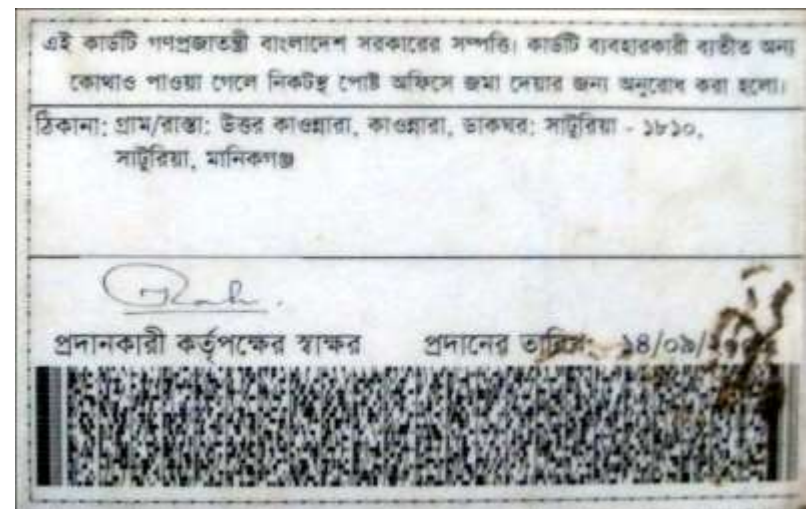 এই কার্ডটি গণপ্রজাতন্ত্রী বাংলাদেশ সরকারের সম্পত্তি। কার্ডটি ব্যবহারকারী ব্যতীত অন্য
কোথাও পাওয়া গেলে নিকটস্থ পোষ্ট অফিসে জমা দেয়ার জন্য অনুরোধ করা হলো।
ঠিকানা: গ্রাম/রাস্তা: উত্তর কাওন্নারা, কাওন্নারা, ডাকঘর: সাটুরিয়া - ১৮১০,
সাটুরিয়া, মানিকগঞ্জ
প্রদানকারী কর্তৃপক্ষের স্বাক্ষর প্রদানের তারিখ: ১৪/০৯/